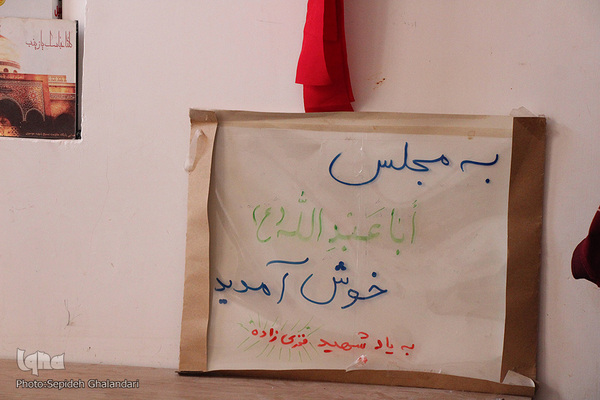 به مجلس
أبا عَبدِ اللّٰه (ع)
خوش آمدید
به یاد شهید فخری زاده
iqna
Photo:Sepideh Ghalandari